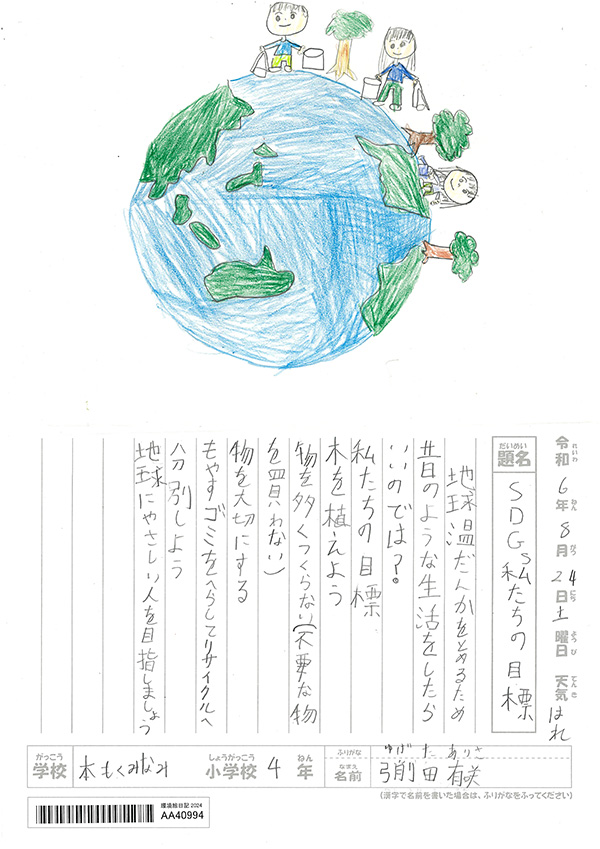 令和6年8月24日土曜日 天気はれ
れいわ ねん がつ にち ようび てんき
だいめい
題名 SDGs私たちの目標
地球温だんかをとめるため
昔のような生活をしたら
いいのでは?
私たちの目標
木を植えよう
物を多くつくらない(不要な物
を買わない)
物を大切にする
もやすゴミをへらしてリサイクルへ
分別しよう
地球にやさしい人を目指しましょう
がっこう しょうがっこう ねん
学校 本もくみなみ 小学校 4年
ふりがな ゆばた ありさ
なまえ
名前 弓削田 有咲
(漢字で名前を書いた場合は、ふりがなをふってください)
環境絵日記 2024
AA40994